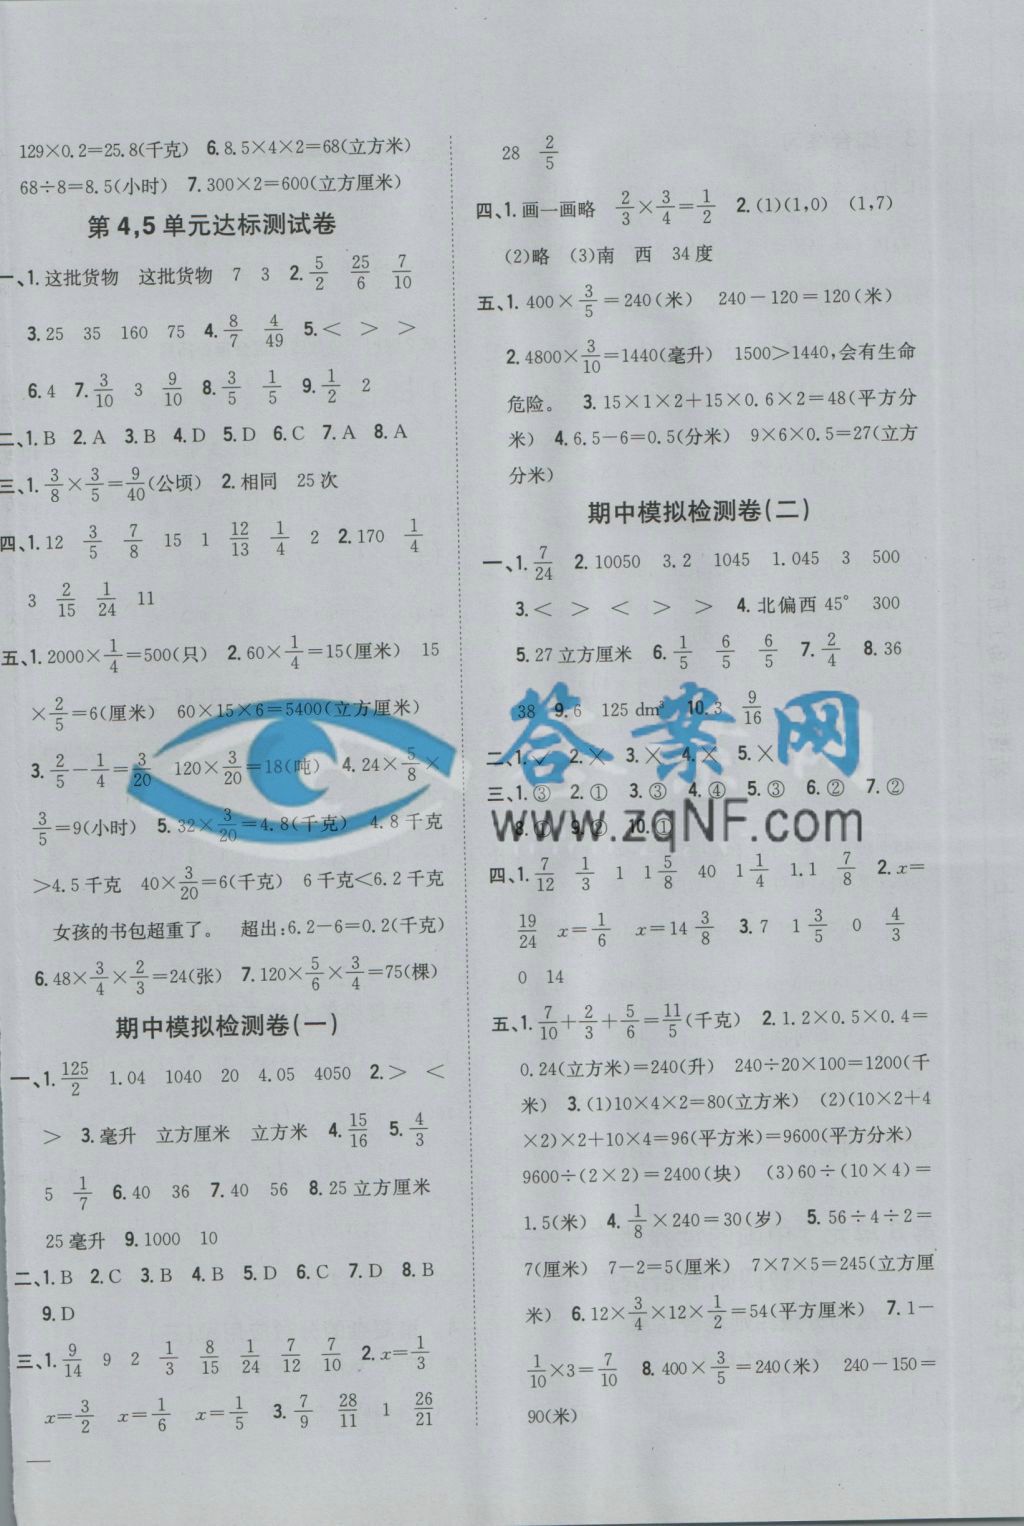 129×0.2=25.8(千克) 6.8.5×4×2=68(立方米)
68÷8=8.5(小时) 7.300×2=600(立方厘米)
第4,5单元达标测试卷
一、1.这批货物 这批货物 7 3 2. 5/2 25/6 7/10
3.25 35 160 75 4. 8/7 4/49 5.< > >
6.4 7. 3/10 3 9/10 8. 3/5 1/5 9. 1/2 2
二、1.B 2.A 3.B 4.D 5.D 6.C 7.A 8.A
三、1. 3/8×3/5=9/40(公顷) 2.相同 25次
四、1.12 3/5 7/8 15 1 12/13 1/4 2 2.170 1/4
3 2/15 1/24 11
五、1.2000×1/4=500(只) 2.60×1/4=15(厘米) 15
×2/5=6(厘米) 60×15×6=5400(立方厘米)
3. 2/5-1/4=3/20 120×3/20=18(吨) 4.24×5/8×
3/5=9(小时) 5.32×3/20=4.8(千克) 4.8千克
>4.5千克 40×3/20=6(千克) 6千克<6.2千克
女孩的书包超重了。 超出:6.2-6=0.2(千克)
6.48×3/4×2/3=24(张) 7.120×5/6×3/4=75(棵)
期中模拟检测卷(一)
一、1. 125/2 1.04 1040 20 4.05 4050 2.> <
> 3.毫升 立方厘米 立方米 4. 15/16 5. 4/3
5 1/7 6.40 36 7.40 56 8.25立方厘米
25毫升 9.1000 10
二、1.B 2.C 3.B 4.B 5.D 6.C 7.D 8.B
9.D
三、1. 9/14 9 2 1/3 8/15 1/24 7/12 7/10 2.x=1/3
x=3/2 x=1/6 x=1/5 3. 7/9 28/11 1 26/21
28 2/5
四、1.画一画略 2/3×3/4=1/2 2.(1)(1,0) (1,7)
(2)略 (3)南 西 34度
五、1.400×3/5=240(米) 240-120=120(米)
2.4800×3/10=1440(毫升) 1500>1440,会有生命
危险。 3.15×1×2+15×0.6×2=48(平方分
米) 4.6.5-6=0.5(分米) 9×6×0.5=27(立方
分米)
期中模拟检测卷(二)
一、1. 7/24 2.10050 3.2 1045 1.045 3 500
3.< > < > > 4.北偏西45° 300
5.27立方厘米 6. 1/5 6/5 6/5 7. 2/4 8.36
38 9.6 125 dm³ 10.3 9/16
二、1.✓ 2.× 3.× 4.× 5.×
三、1.③ 2.① 3.③ 4.④ 5.③ 6.② 7.②
8.① 9.② 10.①
四、1. 7/12 1/3 1 1 5/8 40 1 1/4 1.1 7/8 2.x=
19/24 x=1/6 x=14 3/8 3.7 1 3/5 0 4/3
0 14
五、1. 7/10+2/3+5/6=11/5(千克) 2.1.2×0.5×0.4=
0.24(立方米)=240(升) 240÷20×100=1200(千
米) 3.(1)10×4×2=80(立方米) (2)(10×2+4
×2)×2+10×4=96(平方米)=9600(平方分米)
9600÷(2×2)=2400(块) (3)60÷(10×4)=
1.5(米) 4. 1/8×240=30(岁) 5.56÷4÷2=
7(厘米) 7-2=5(厘米) 7×7×5=245(立方厘
米) 6.12×3/4×12×1/2=54(平方厘米) 7.1-
1/10×3=7/10 8.400×3/5=240(米) 240-150=
90(米)
答案网
www.zqNF.com